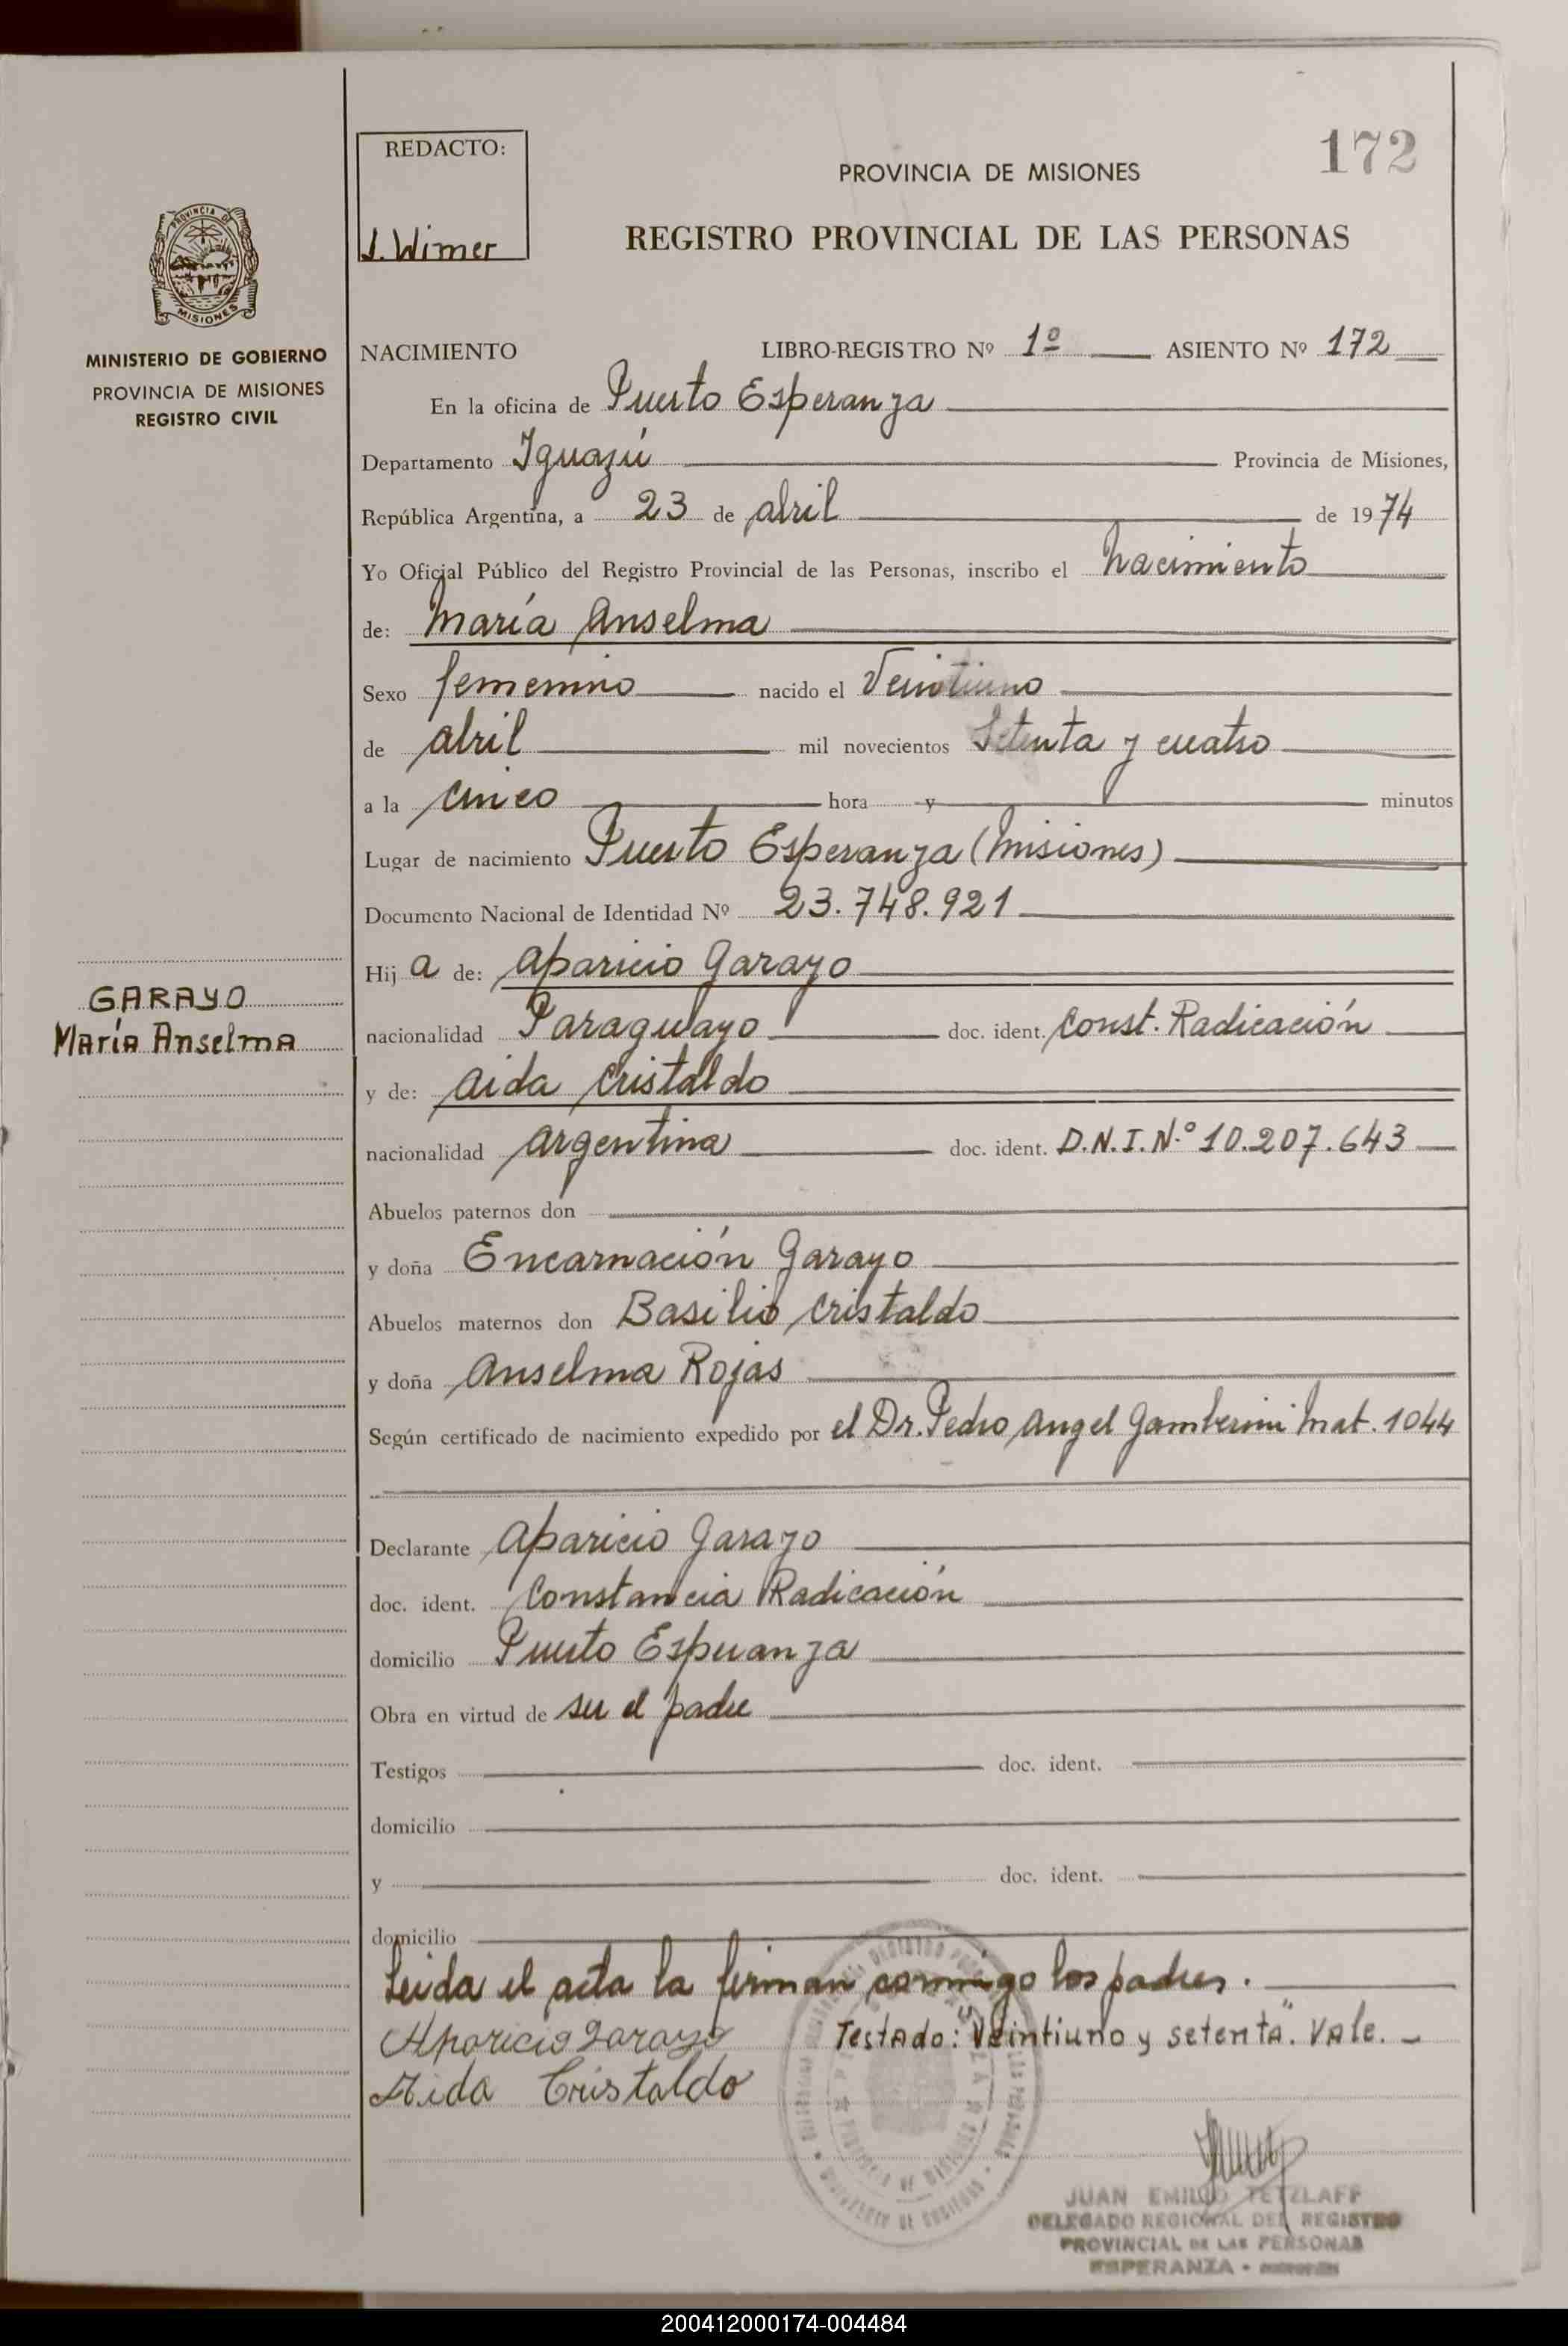 172
REDACTO:
J. Wimer
PROVINCIA DE MISIONES
REGISTRO PROVINCIAL DE LAS PERSONAS
PROVINCIA DE
MISIONES
MINISTERIO DE GOBIERNO
PROVINCIA DE MISIONES
REGISTRO CIVIL
NACIMIENTO LIBRO-REGISTRO Nº 1º ASIENTO Nº 172
En la oficina de Puerto Esperanza
Departamento Iguazú Provincia de Misiones,
República Argentina, a 23 de abril de 1974
Yo Oficial Público del Registro Provincial de las Personas, inscribo el nacimiento
de: María Anselma
Sexo femenino nacido el Veintiuno
de abril mil novecientos Setenta y cuatro
a la cinco hora y minutos
Lugar de nacimiento Puerto Esperanza (Misiones)
Documento Nacional de Identidad Nº 23.748.921
Hij a de: Aparicio Garayo
GARAYO
María Anselma
nacionalidad Paraguayo doc. ident. Const. Radicación
y de: Aida Cristaldo
nacionalidad argentina doc. ident. D.N.I. N.º 10.207.643
Abuelos paternos don
y doña Encarnación Garayo
Abuelos maternos don Basilio Cristaldo
y doña Anselma Rojas
Según certificado de nacimiento expedido por el Dr. Pedro Angel Gamberini Mat. 1044
Declarante Aparicio Garayo
doc. ident. Constancia Radicación
domicilio Puerto Esperanza
Obra en virtud de ser el padre
Testigos doc. ident.
domicilio
y doc. ident.
domicilio
Leida el acta la firman conmigo los padres.
Aparicio Garayo Testado: "Veintiuno y setenta". Vale.-
Aida Cristaldo
JUAN EMILIO TETZLAFF
DELEGADO REGIONAL DEL REGISTRO
PROVINCIAL DE LAS PERSONAS
ESPERANZA -
200412000174-004484